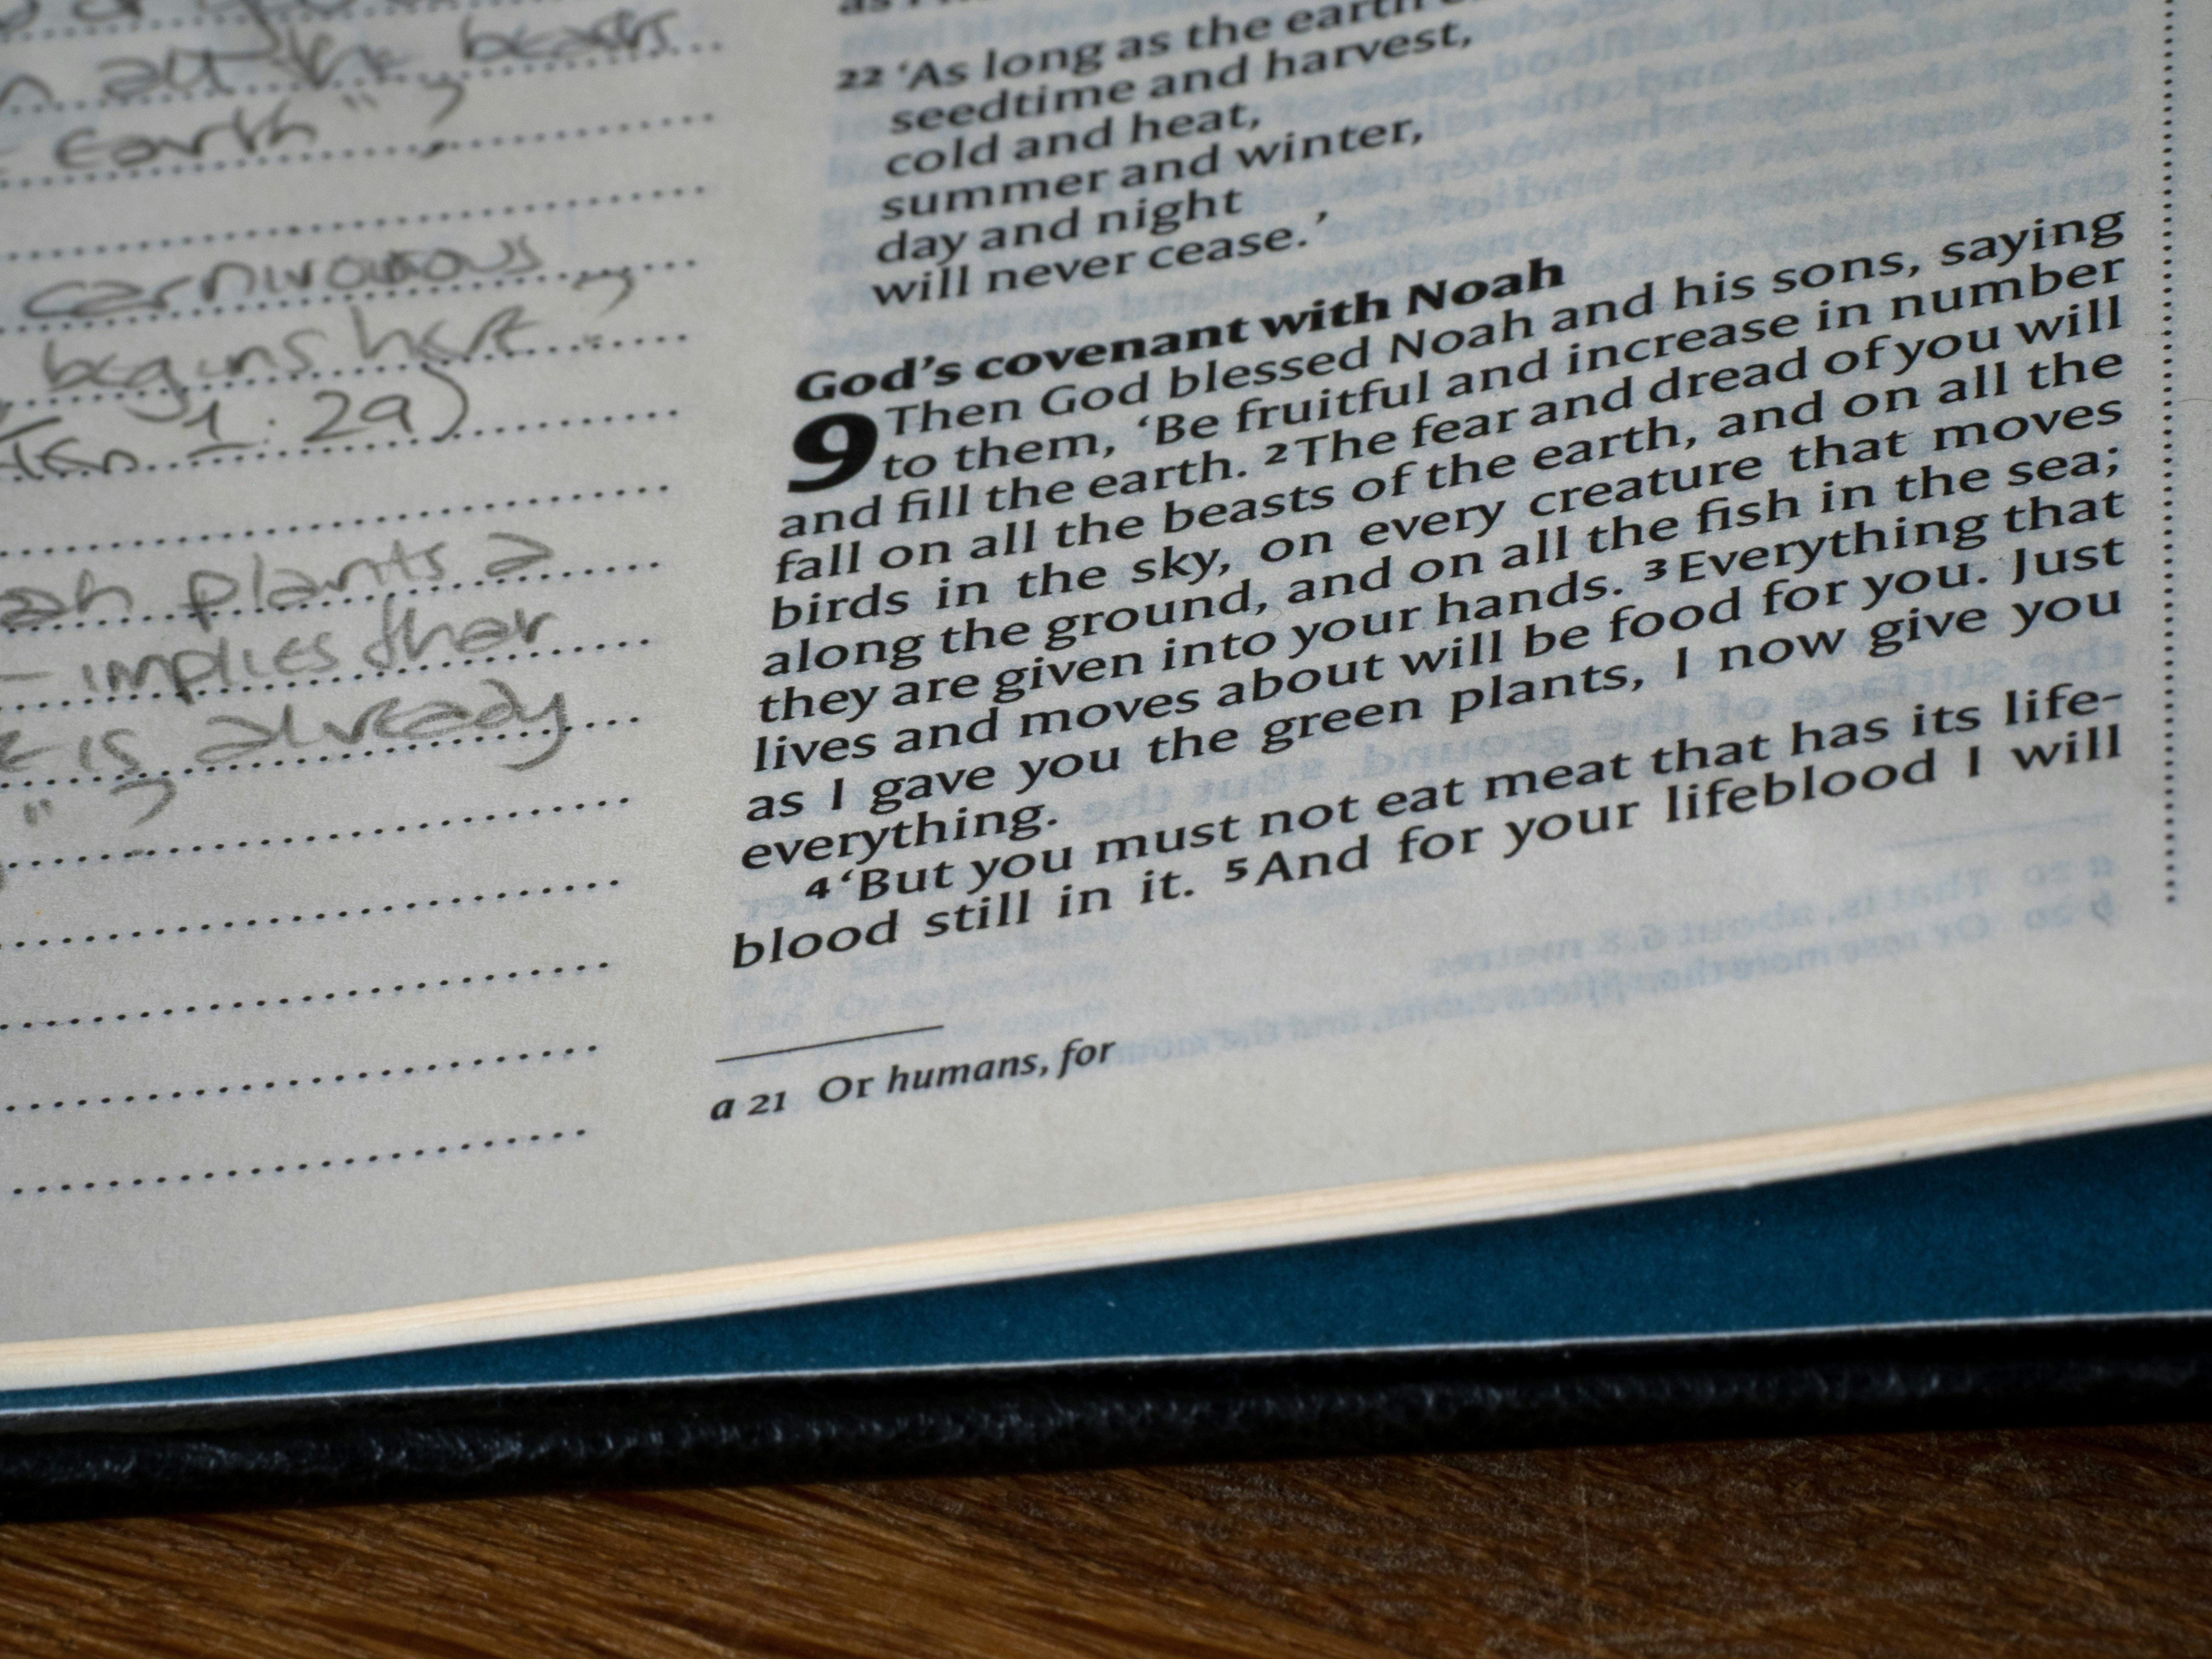 n all the beasts
earth" ?
carnivorous
begins here ?
(Gen 1:29)
ah plants a
- implies ther
is already
" ?
22 'As long as the earth
seedtime and harvest,
cold and heat,
summer and winter,
day and night
will never cease.'
God's covenant with Noah
9 Then God blessed Noah and his sons, saying
to them, 'Be fruitful and increase in number
and fill the earth. 2 The fear and dread of you will
fall on all the beasts of the earth, and on all the
birds in the sky, on every creature that moves
along the ground, and on all the fish in the sea;
they are given into your hands. 3 Everything that
lives and moves about will be food for you. Just
as I gave you the green plants, I now give you
everything.
4 'But you must not eat meat that has its life-
blood still in it. 5 And for your lifeblood I will
a 21 Or humans, for